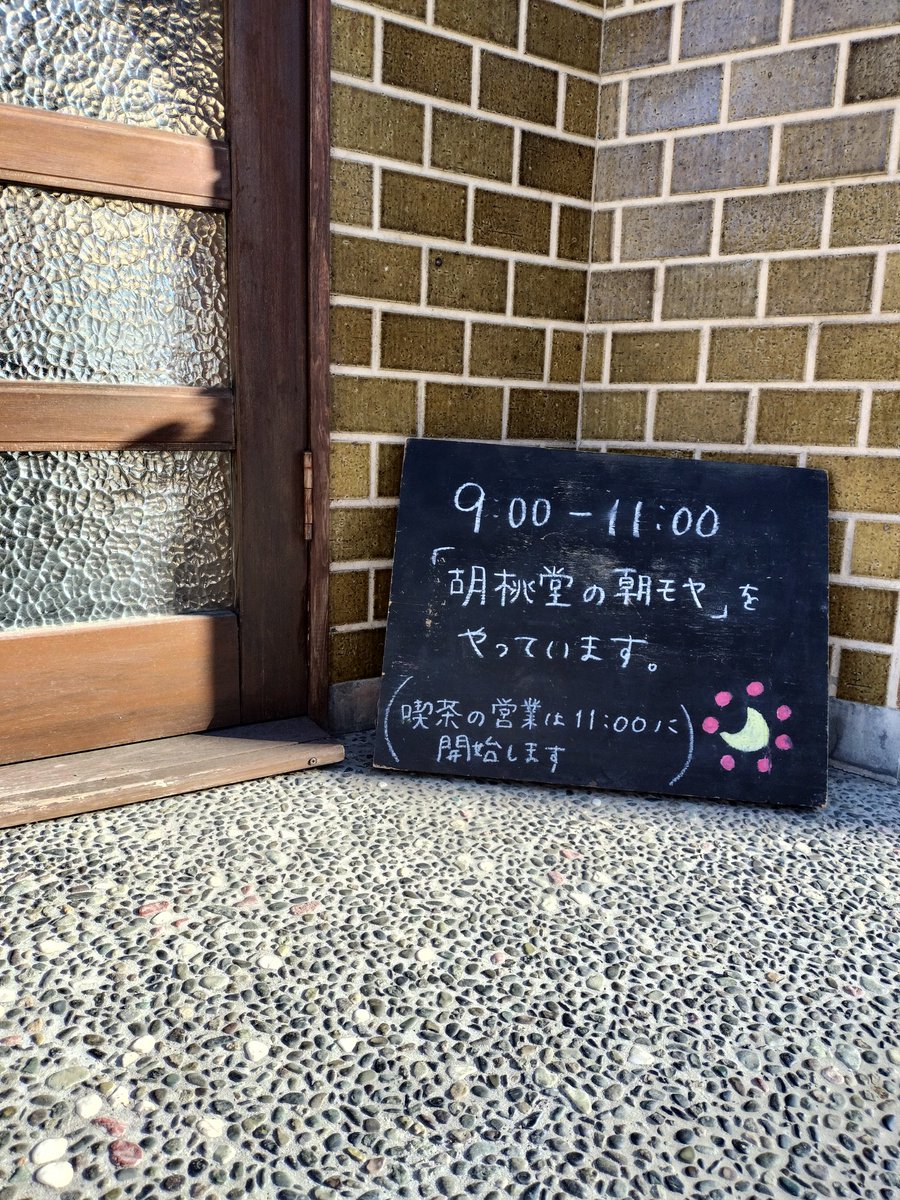 9:00-11:00
「胡桃堂の朝モヤ」を
やっています。
(喫茶の営業は11:00に
開始します)